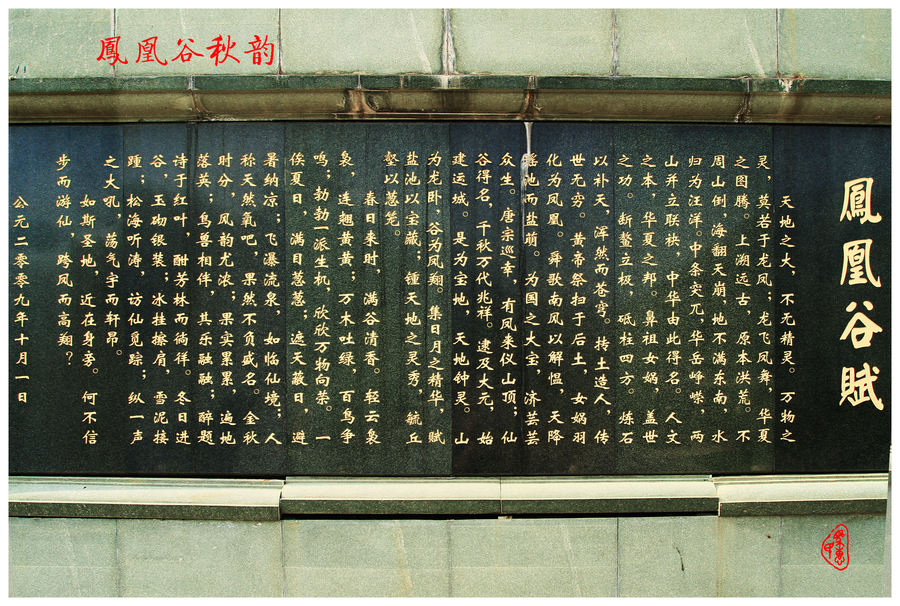 鳳凰谷秋韵
鳳凰谷賦
天地之大，不无精灵。万物之
灵，莫若于龙凤；龙飞凤舞，华夏
之图腾。上溯远古，原本洪荒。不
周山倒，海翻天崩，地不满东南，水
归为汪洋。中条突兀，华岳峥嵘，两
山并立联袂，中华由此得名。人文
之本，华夏之邦。鼻祖女娲，盖世
之功。斩鳌立极，砥柱四方。炼石
以补天，浑然而苍穹。抟土造人，传
世无穷。黄帝祭扫于后土，女娲羽
化为凤凰。舜歌南风以解愠，天降
瑶池而盐萌。为国之大宝，济芸芸
众生。唐宗巡幸，有凤来仪山顶；仙
谷得名，千秋万代兆祥。逮及大元，始
建运城。是为宝地，天地钟灵。山
为龙卧，谷为凤翔。集日月之精华，赋
盐池以宝藏；锺天地之灵秀，毓丘
壑以葱茏。
春日来时，满谷清香。轻云袅
袅，连翘黄黄；万木吐绿，百鸟争
鸣；勃勃一派生机，欣欣万物向荣。一
俟夏日，满目葱葱；遮天蔽日，避
暑纳凉；飞瀑流泉，如临仙境；人
称天然氧吧，果然不负盛名。金秋
时分，风韵尤浓；果实累累，遍地
落英；鸟兽相伴，其乐融融；醉题
诗于红叶，酣芳林而徜徉。冬日进
谷，玉砌银装；冰挂擦肩，雪泥接
踵；松海听涛，访仙觅踪；纵一声
之大吼，荡气宇而轩昂。
如斯圣地，近在身旁。何不信
步而游仙，跨凤而高翔？
公元二零零九年十月一日